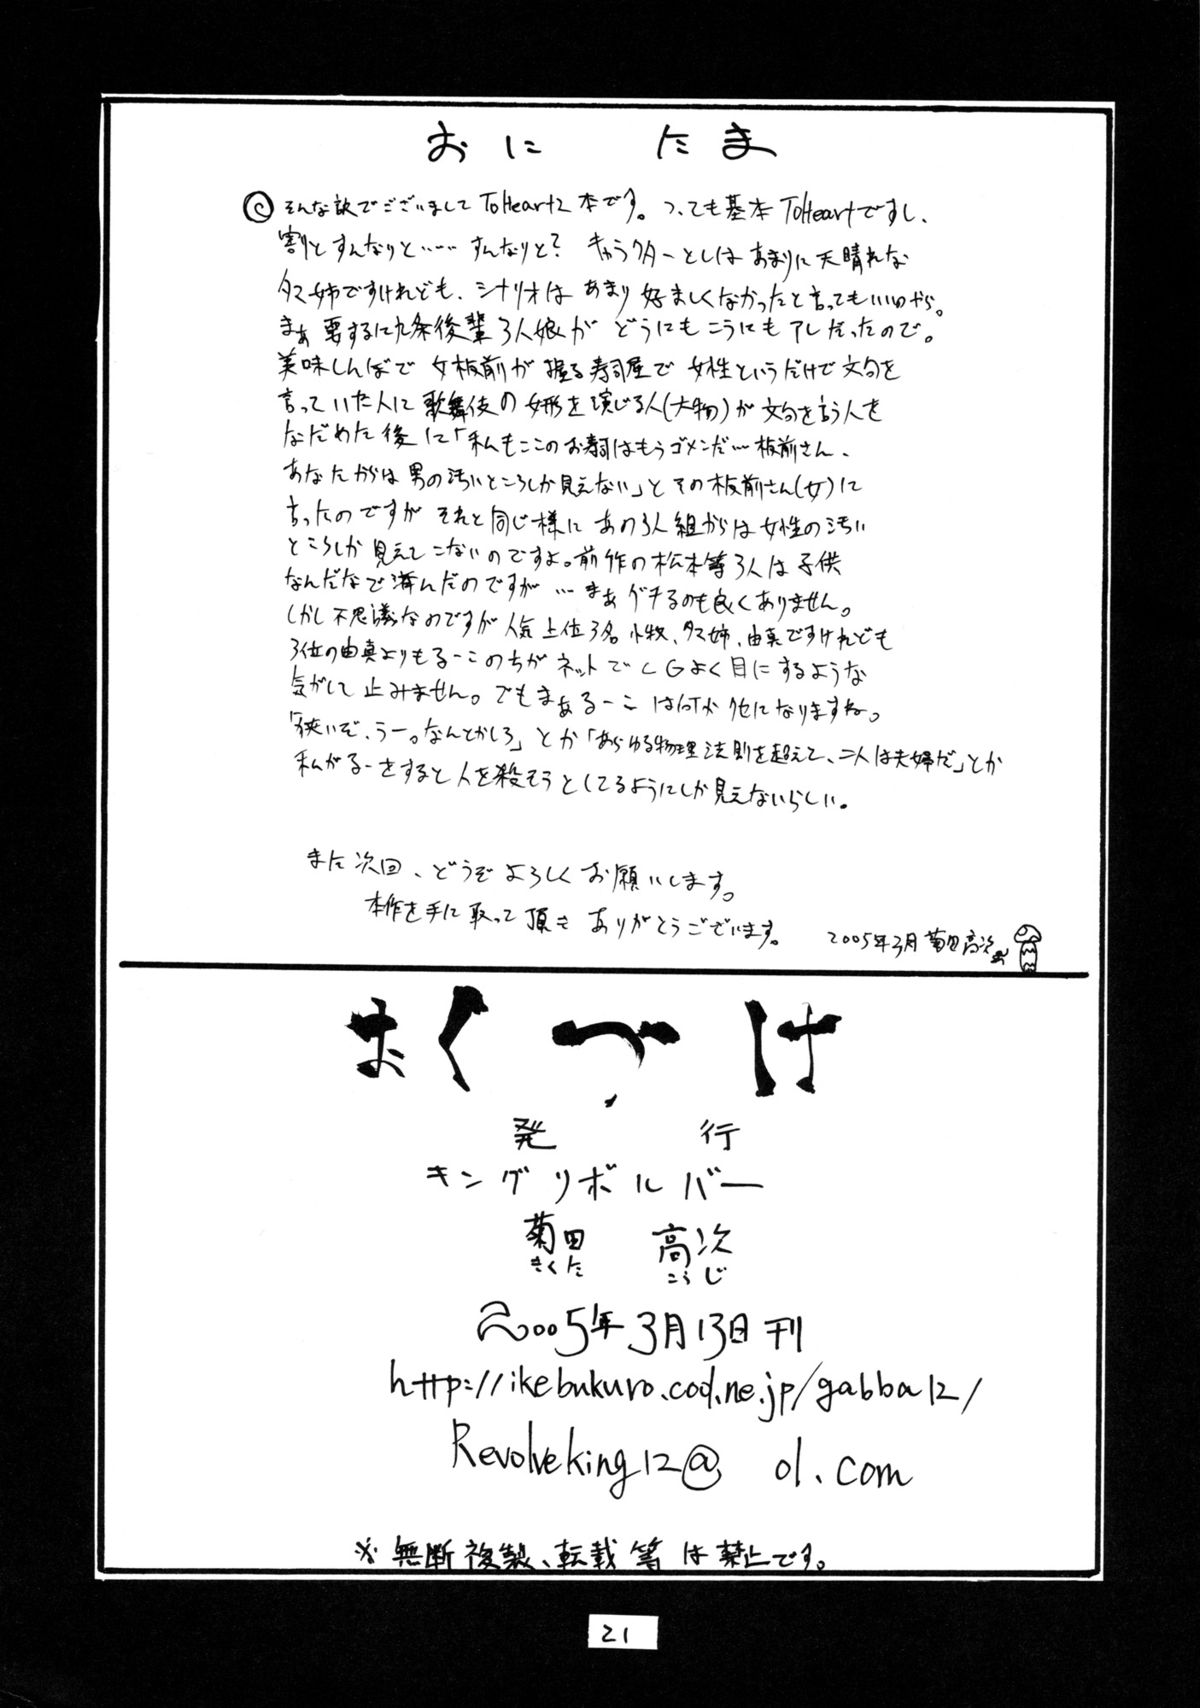 おに たま
そんな訳でございまして ToHeart2 本です。つっても基本 ToHeartですし、
割とすんなりと…… すんなりと? キャラクターとしは あまりに天晴れな
タマ姉ですけれども、シナリオは あまり 好ましくなかったと言ってもいいのやら。
まぁ 要するに九条後輩3人娘が どうにもこうにも アレだったので。
美味しんぼで 女板前が 握る寿司屋で 女性というだけで文句を
言っていた人に歌舞伎の女形を演じる人(大物)が文句を言う人を
なだめた後に「私もここのお寿司はもうゴメンだ…板前さん、
あなたからは男の汚いところしか見えない」とその板前さん(女)に
言ったのですが それと同じ様に あの3人組からは女性の汚い
ところしか見えてこないのですよ。前作の松本等3人は子供
なんだなで済んだのですが…まぁグチるのも良くありません。
しかし不思議なのですが人気上位3名 小牧、タマ姉、由真ですけれども
3位の由真よりもるーこのちがネットでCGよく目にするような
気がして止みません。でもまぁるーこは何かクセになりますね。
「狭いぞ、うー。なんとかしろ」とか「あらゆる物理法則を超えて、二人は夫婦だ」とか
私がるーをすると人を殺そうとしてるようにしか見えないらしい。
また次回、どうぞよろしくお願いします。
本作を手に取って頂き ありがとうございます。
2005年3月 菊田高次
おくづけ
発行
キングリボルバー
菊田 高次
きくた こうじ
2005年3月13日刊
http://ikebukuro.cool.ne.jp/gabba12/
Revolveking12@ ol.com
※無断複製、転載等は禁止です。
21